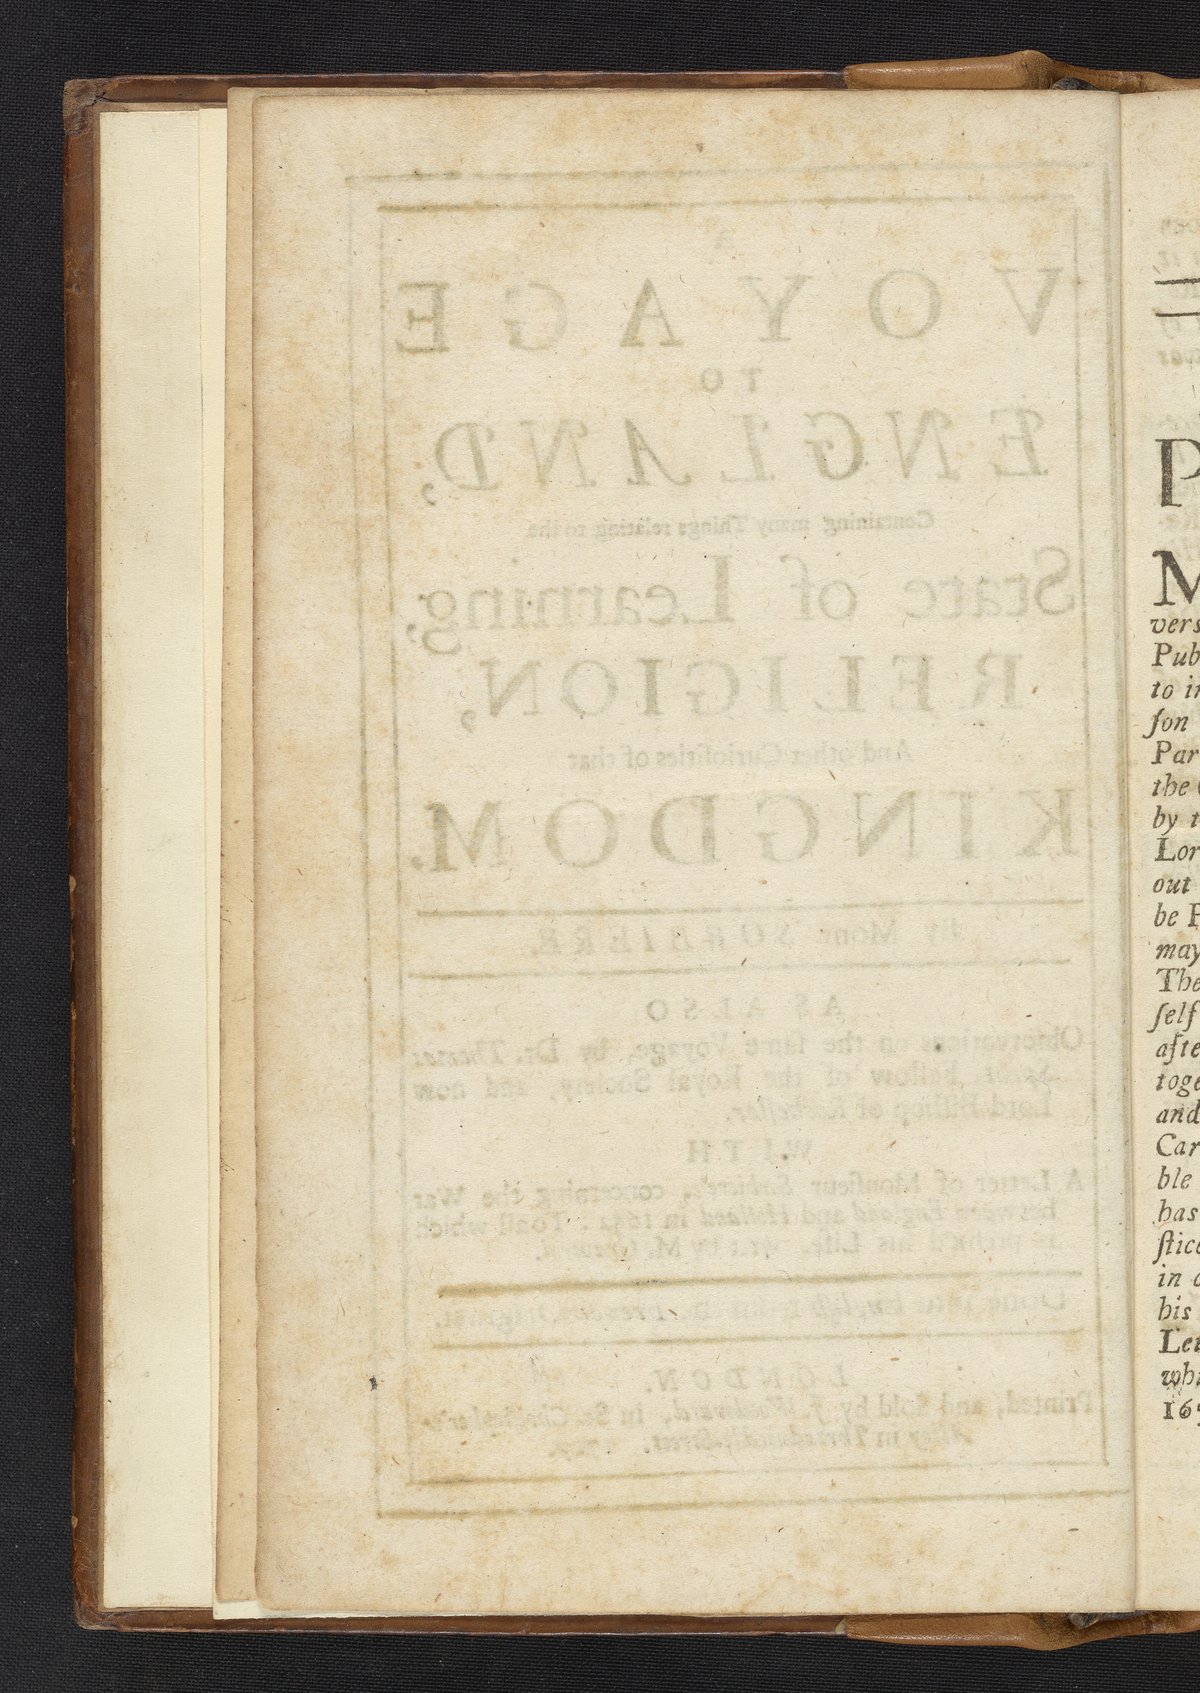 A
VOYAGE
TO
ENGLAND,
Containing many Things relating to the
State of Learning,
RELIGION,
And other Curiosities of that
KINGDOM.
By Monr. SORBIERE.
AS ALSO
Observations on the same Voyage, by Dr. Thomas
Sprat, Fellow of the Royal Society, and now
Lord Bishop of Rochester.
WITH
A Letter of Monsieur Sorbiere's, concerning the War
between England and Holland in 1652: To all which
is prefix'd his Life, by M. Graverol.
Done into English from the French Original.
LONDON,
Printed, and Sold by J. Woodward, in St. Christopher's-
Alley in Threadneedle-street.
P
M
vers
Pub
to in
ſon
Par
the
by t
Lor
out
be P
may
The
ſelf
afte
toge
and
Car
ble
has
ſtice
in
his
Let
whi
16